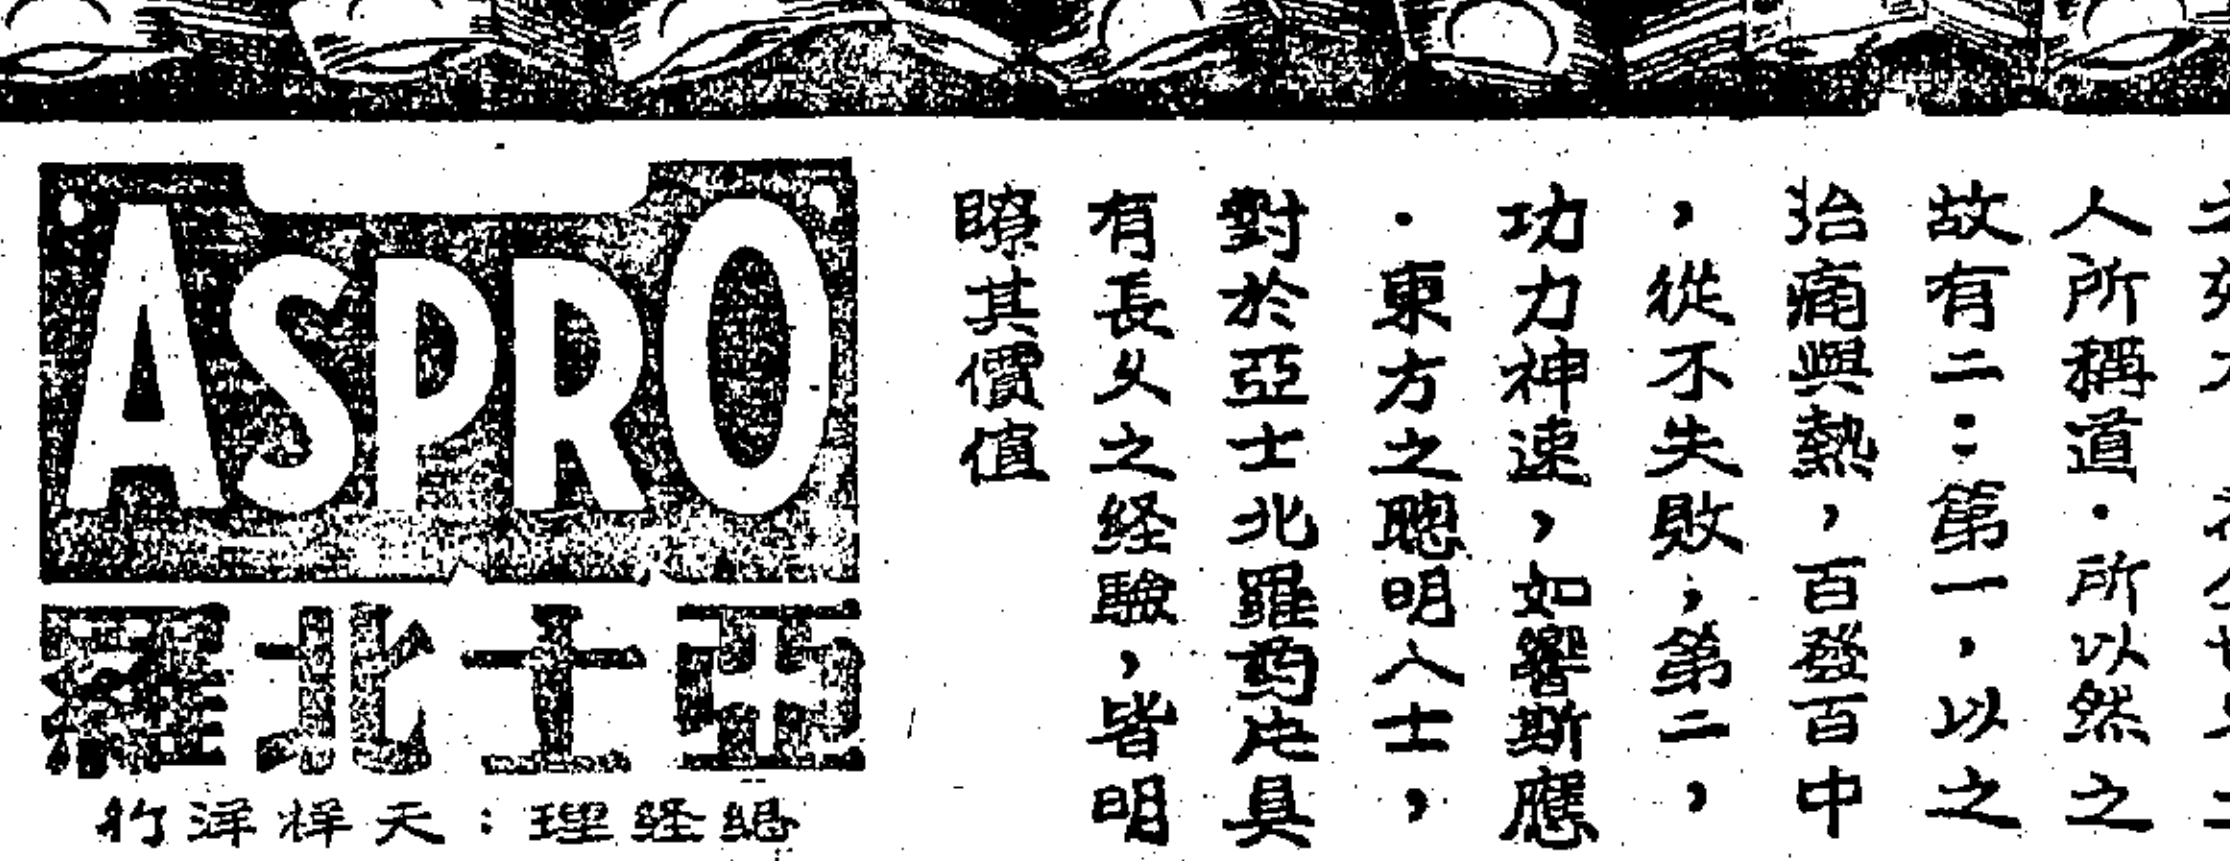 人所稱道．所以然之
故有二：第一，以之
治痛與熱，百發百中
，從不失敗；第二，
功力神速，如響斯應
．東方之聰明人士，
對於亞士北羅药片具
有長久之経驗，皆明
瞭其價值
ASPRO
亞士北羅
總経理：天祥洋行